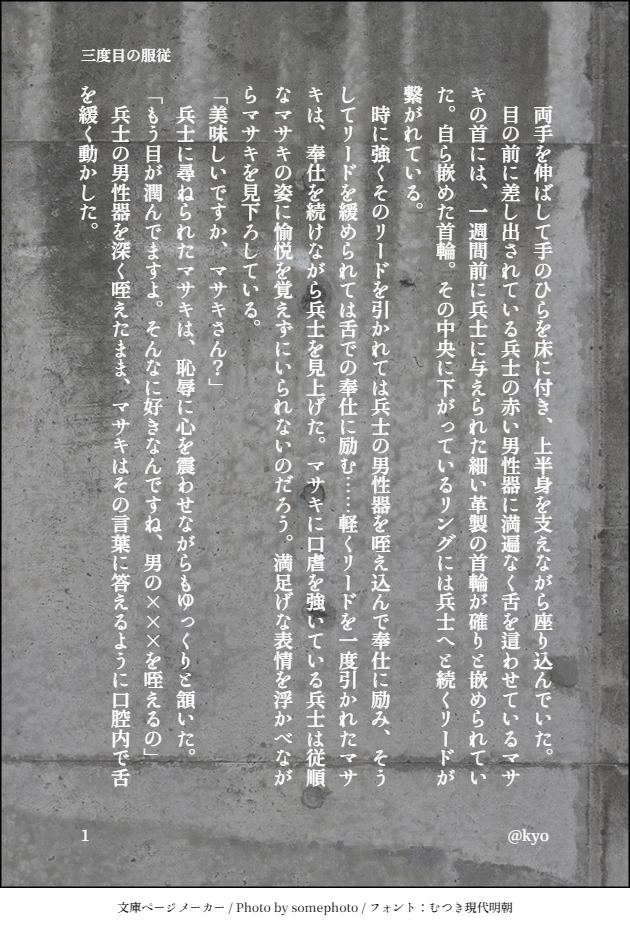 三度目の服従
両手を伸ばして手のひらを床に付き、上半身を支えながら座り込んでいた。
目の前に差し出されている兵士の赤い男性器に満遍なく舌を這わせているマサ
キの首には、一週間前に兵士に与えられた細い革製の首輪が確りと嵌められてい
た。自ら嵌めた首輪。その中央に下がっているリングには兵士へと続くリードが
繋がれている。
時に強くそのリードを引かれては兵士の男性器を咥え込んで奉仕に励み、そう
してリードを緩められては舌での奉仕に励む……軽くリードを一度引かれたマサ
キは、奉仕を続けながら兵士を見上げた。マサキに口虐を強いている兵士は従順
なマサキの姿に愉悦を覚えずにいられないのだろう。満足げな表情を浮かべなが
らマサキを見下ろしている。
「美味しいですか、マサキさん？」
兵士に尋ねられたマサキは、恥辱に心を震わせながらもゆっくりと頷いた。
「もう目が潤んでますよ。そんなに好きなんですね、男の×××を咥えるの」
兵士の男性器を深く咥えたまま、マサキはその言葉に答えるように口腔内で舌
を緩く動かした。
1
@kyo
文庫ページメーカー / Photo by somephoto / フォント：むつき現代明朝